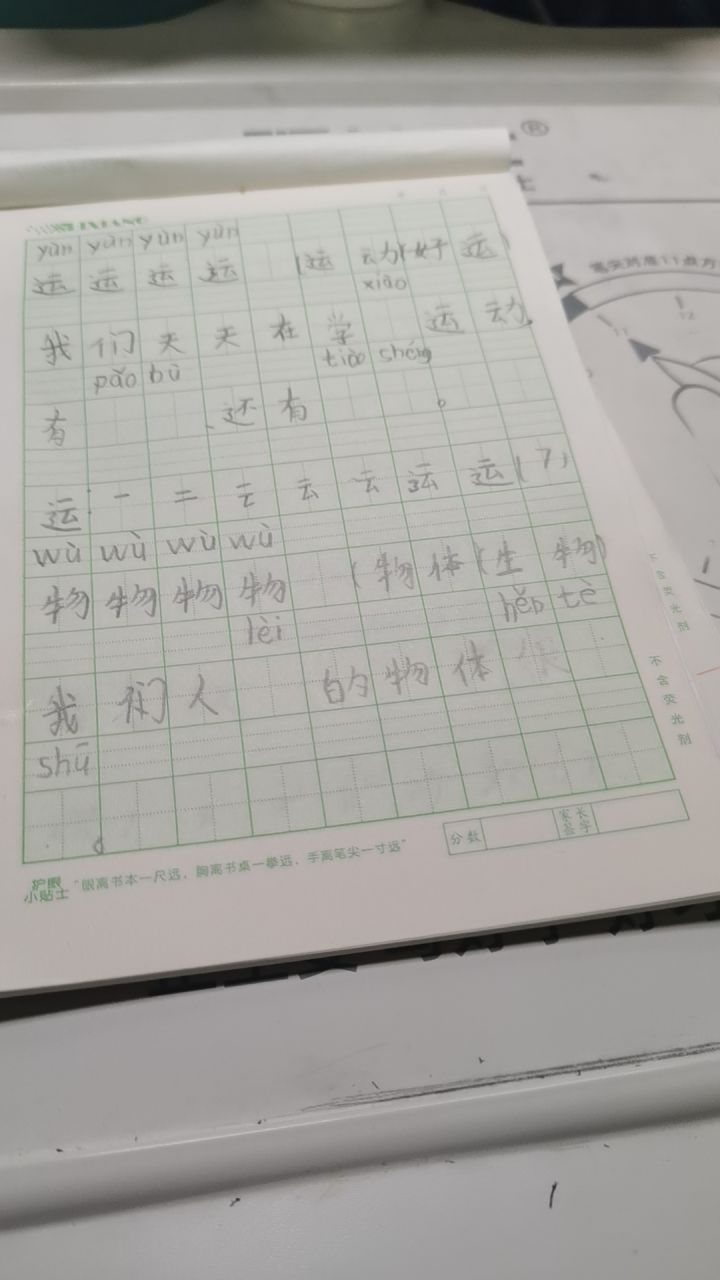 yùn yùn yùn yùn
运 运 运 运 (运 动)(好 运)
xiào
我 们 天 天 在 学 运 动,
tiào shéng
pǎo bù
有 、还 有 。
运:一 二 云 云 云 运 运(7)
wù wù wù wù
物 物 物 物 (物 体)(生 物)
lèi hěn tè
我 们 人 的 物 体
shū
分数
家长签字
护眼小贴士
“眼离书本一尺远,胸离书桌一拳远,手离笔尖一寸远”
不含荧光剂